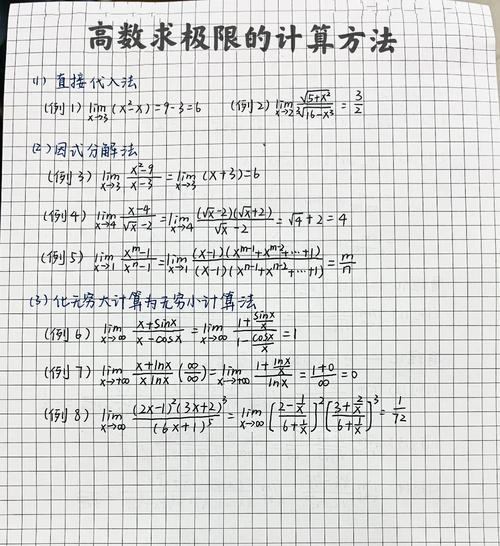 高数求极限的计算方法
(1) 直接代入法
(例1) lim_{x→3} (x²-x) = 9-3 = 6 (例2) lim_{x→2} √(5+x²) / ³√(16-x³) = 3/2
(2) 因式分解法
(例3) lim_{x→3} (x²-9)/(x-3) = lim_{x→3} (x+3) = 6
(例4) lim_{x→4} (x-4)/(√x-2) = lim_{x→4} (√x-2)(√x+2)/(√x-2) = √4+2 = 4
(例5) lim_{x→1} (x^m-1)/(x^n-1) = lim_{x→1} (x-1)(x^{m-1}+x^{m-2}+…+1)/(x-1)(x^{n-1}+x^{n-2}+…+1) = m/n
(3) 化无穷大计算为无穷小计算法
(例6) lim_{x→∞} (x+sinx)/(x-cosx) = lim_{x→∞} (1+sinx/x)/(1-cosx/x) = 1
(例7) lim_{x→+∞} (x+lnx)/(xlnx) (∞/∞) = lim_{x→+∞} (1+lnx/x)/lnx = (1+0)/∞ = 0
(例8) lim_{x→∞} (2x-1)²(3x+2)³/(6x+1)⁵ = lim_{x→∞} [(2-1/x)/(6+1/x)]² [(3+2/x)/(6+1/x)]³ = 1/72